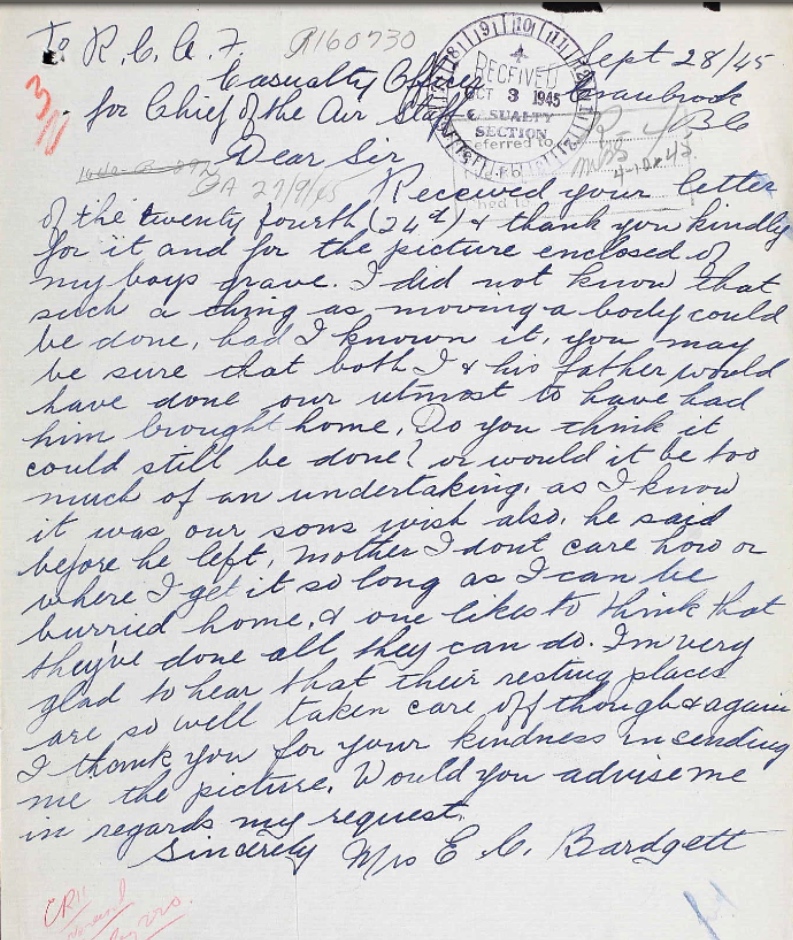 To R.C.A.F. R160730 Sept 28/45
Casualty Officer Cranbrook
for Chief of the Air Staff B.C.
RECEIVED
OCT 3 1945
CASUALTY
SECTION
Referred to
R-4
4-10-45
Dear Sir
27/9/45 Received your letter
of the twenty fourth (24th) & thank you kindly
for it and for the picture enclosed of
my boys grave. I did not know that
such a thing as moving a body could
be done, had I known it, you may
be sure that both I & his father would
have done our utmost to have had
him brought home. Do you think it
could still be done? or would it be too
much of an undertaking, as I know
it was our sons wish also, he said
before he left, Mother I dont care how or
where I get it so long as I can be
burried home, & one likes to think that
they've done all they can do. I'm very
glad to hear that their resting places
are so well taken care off though & again
I thank you for your kindness in sending
me the picture. Would you advise me
in regards my request.
Sincerely Mrs E. C. Bardgett